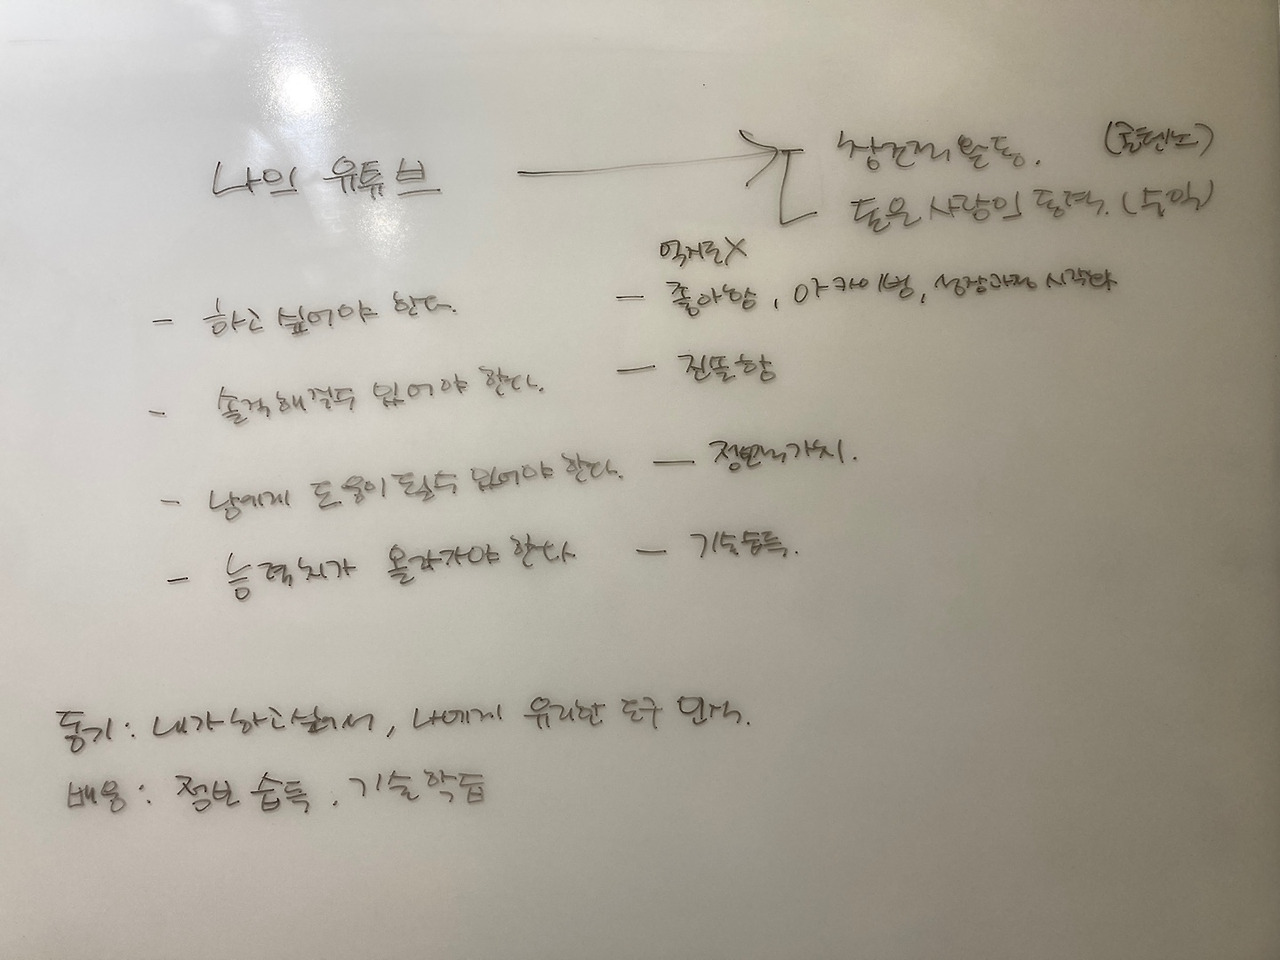 나의 유튜브
창언적 활동. (콘텐츠)
돈은 사람의 동력. (수익)
억지로X
- 하고 싶어야 한다. - 좋아함, 아카이빙, 성장과정 시각화
- 솔직해질수 있어야 한다. - 진똘함
- 남에게 도움이 될수 있어야 한다. - 정보적가치.
- 능력치가 올라가야 한다. - 기술습득.
동기: 내가하고싶어서, 나에게 유리한 도구 인식.
배움: 정보 습득, 기술학습